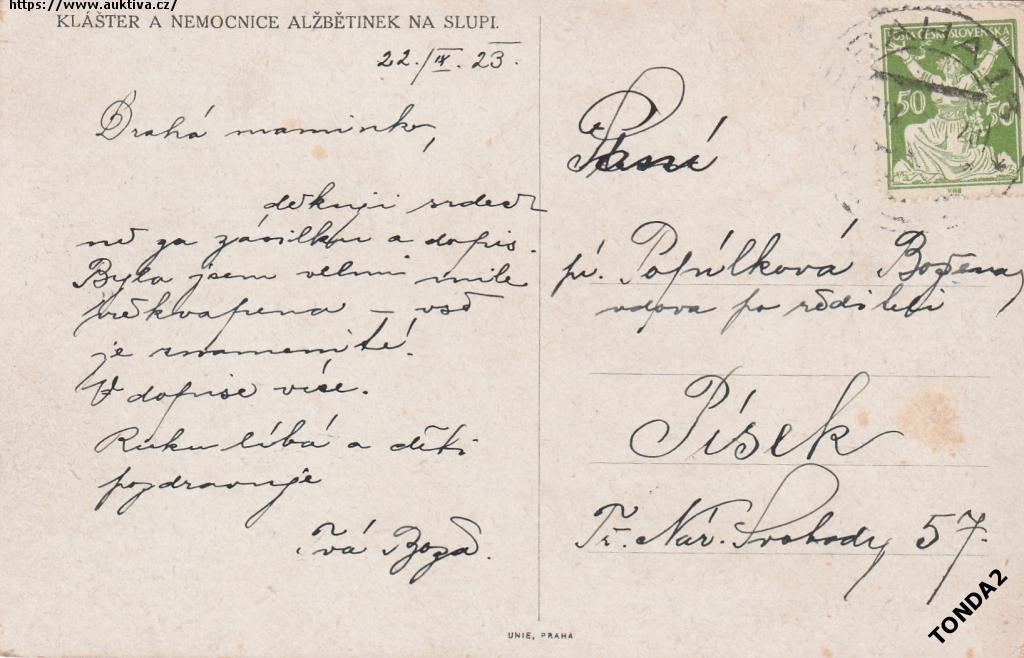 https://www.auktiva.cz/
KLÁŠTER A NEMOCNICE ALŽBĚTINEK NA SLUPI.
22./IX. 23.
Drahá maminko,
děkuji srdeč
ně za zásilku a dopis.
Byla jsem velmi mile
překvapena – vše
je znamenité!
V dopise více.
Ruku líbá a děti
pozdravuje
Tvá Boža.
Paní
pí. Popúlková Božena,
vdova po řediteli
Písek
Tř. Nár. Svobody 57.
POŠTA ČESKOSLOVENSKA
50 50
UNIE, PRAHA
TONDA2